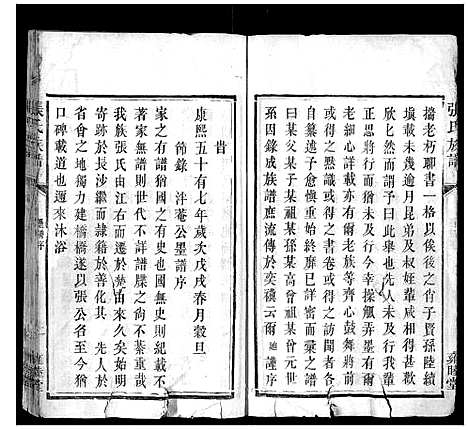 張氏族譜
搦老朽聊書一格以俟後之肖子賢孫陸續
填載未幾逾月昆弟及叔姪輩咸相得甚
欣匕然而謂予曰此舉也先行於我輩
正思將行而猶未及行今幸操觚弄墨有爾
老細心詳載亦有爾老族等齊心鼓舞將前
或得之黙識者或得之書卷或得之訪聞者各
自註明部下歷歷詳審密而彙之爾
曰某父某子某祖某孫某高曾祖某曾元世
系因錄成族譜庶流傳於奕禩云爾 謹序
雍睦堂
旹
康熙五十有七年歲次戊戌春月穀旦
節錄 泮菴公墨譜序
家之有譜猶國之有史也國無史則紀載不
著家無譜則世代不詳譜牒之尚不綦重哉
我族張氏由江右而遷於楚由來久矣始明
寄跡於長沙繼而隸籍於善化其 先人於
省會之地獨力建橋橋遂以張公名至今猶
口碑載道也邇來沐浴
張氏族譜